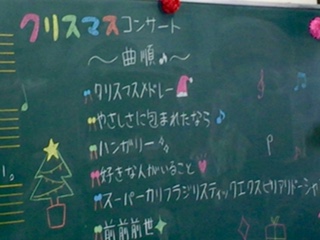 クリスマスコンサート
〜曲順♪〜
クリスマスメドレー
やさしさに包まれたなら♪
ハンガリー
好きな人がいること
スーパーカリフラジリスティックエクスピリアリドーシャ
前前前世